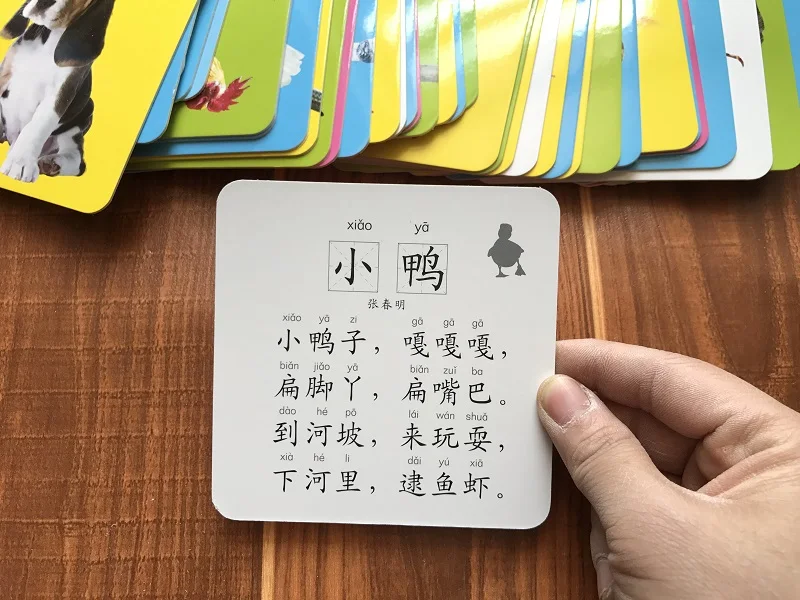 xiǎo yā
小鸭
张春明
xiǎo yā zi gā gā gā
小鸭子，嘎嘎嘎，
biǎn jiǎo yā biǎn zuǐ ba
扁脚丫，扁嘴巴。
dào hé pō lái wán shuǎ
到河坡，来玩耍，
xià hé lǐ dǎi yú xiā
下河里，逮鱼虾。